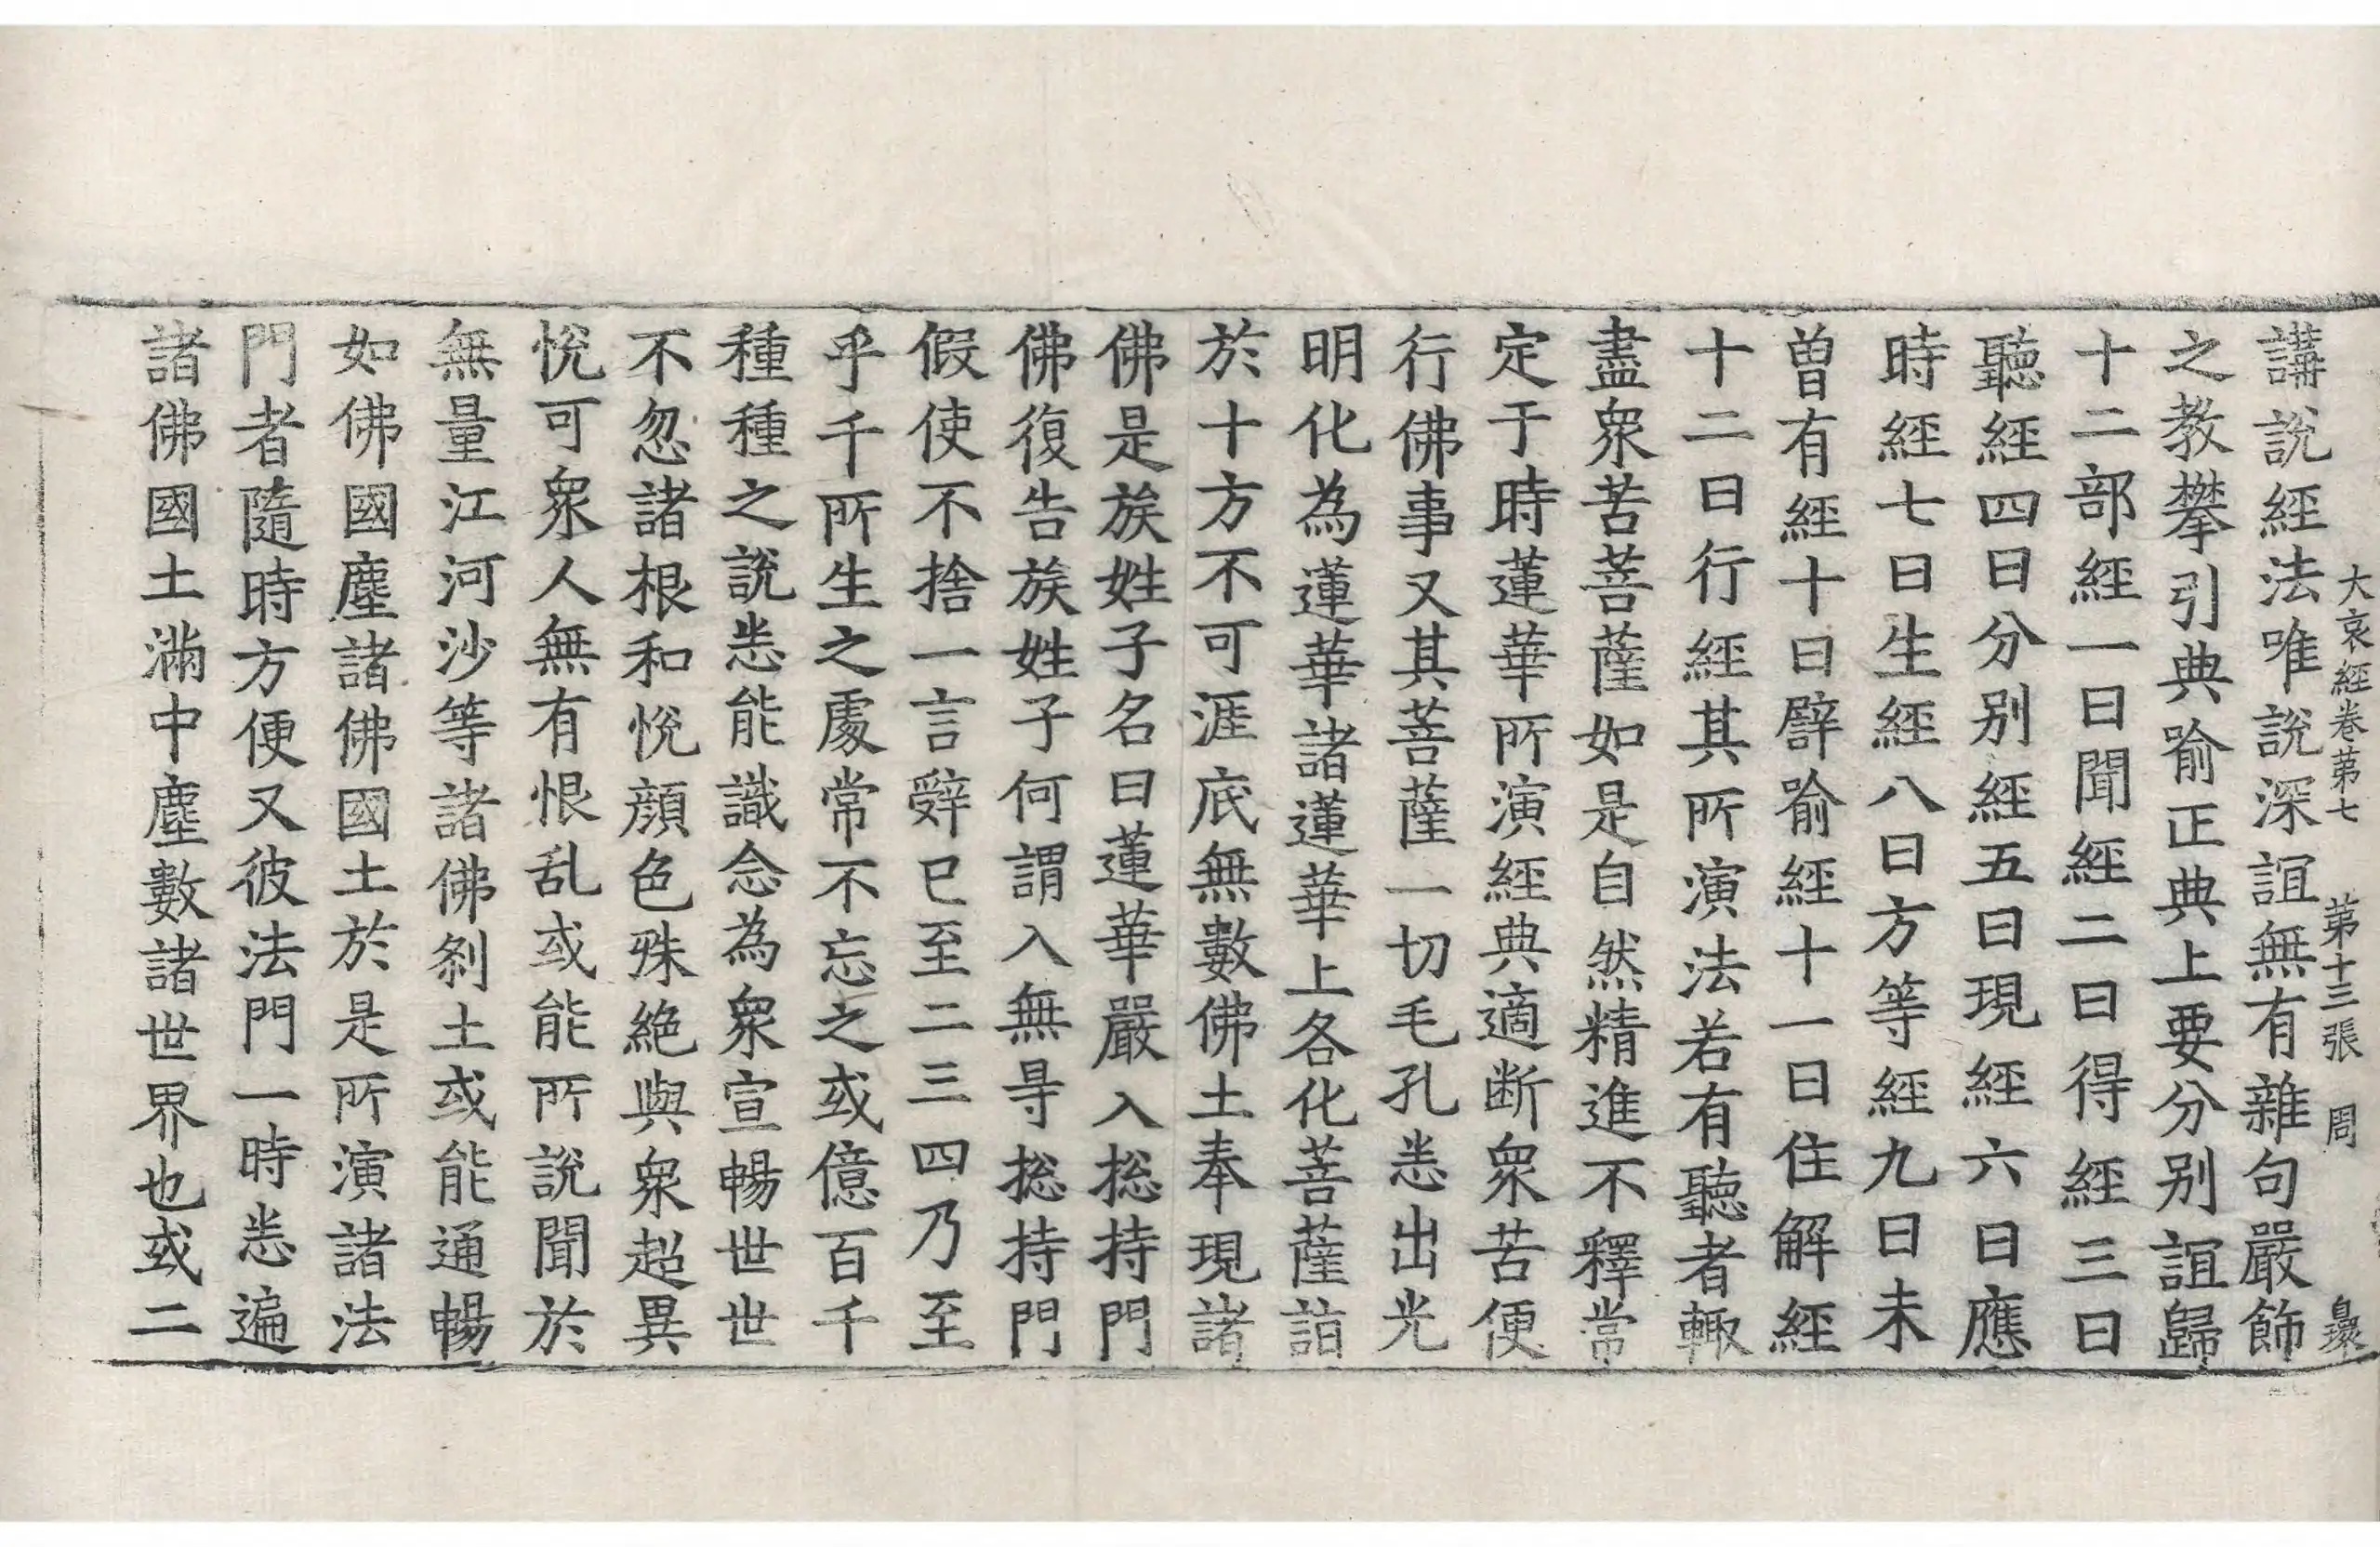 大哀經卷第七 第十三張 周
講說經法唯說深誼無有雜句嚴飾
之教攀引典喻正典上要分別誼歸
十二部經一曰聞經二曰得經三曰
聽經四曰分別經五曰現經六曰應
時經七曰生經八曰方等經九曰未
曾有經十曰譬喻經十一曰住解經
十二曰行經其所演法若有聽者輙
盡衆苦菩薩如是自然精進不釋常
定于時蓮華所演經典適断衆苦便
行佛事又其菩薩一切毛孔悉出光
明化為蓮華諸蓮華上各化菩薩詣
於十方不可涯底無數佛土奉現諸
佛是族姓子名曰蓮華嚴入捴持門
佛復告族姓子何謂入無㝵捴持門
假使不捨一言辤已至二三四乃至
乎千所生之處常不忘之或億百千
種種之說悉能識念為衆宣暢世世
不忽諸根和悅顔色殊絶與衆超異
悅可衆人無有恨乱或能所說聞於
無量江河沙等諸佛刹土或能通暢
如佛國塵諸佛國土於是所演諸法
門者隨時方便又彼法門一時悉遍
諸佛國土滿中塵數諸世界也或二